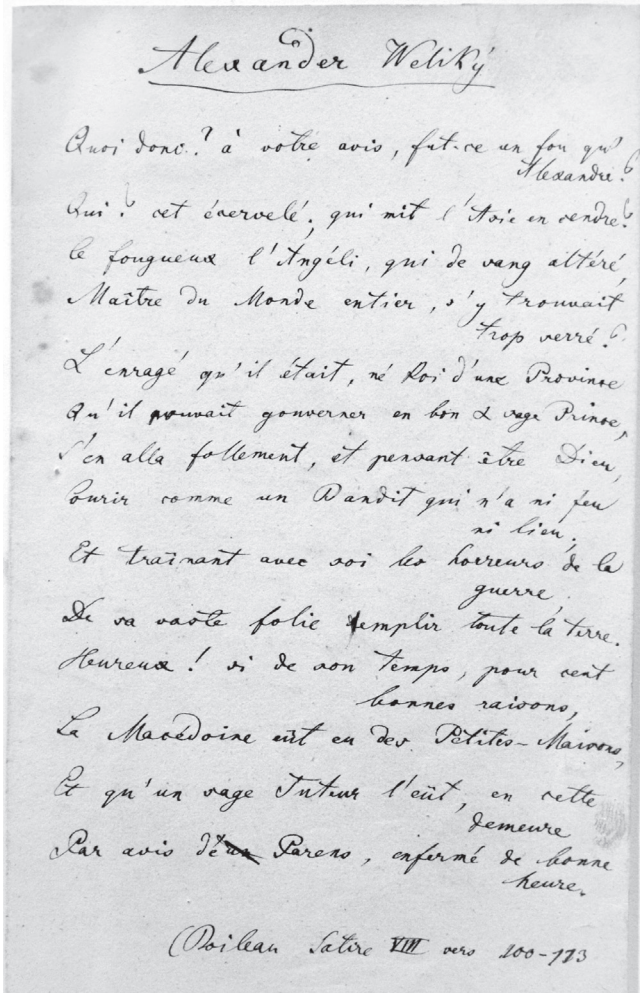 Alexander Weliký
Quoi donc? à votre avis, fut-ce un fou qu'
Alexandre?
Qui? cet écervelé, qui mit l'Asie en cendre?
Le fougueux l'Angéli, qui de sang altéré,
Maître du Monde entier, s'y trouvait
trop serré?
L'enragé qu'il était, né Roi d'une Province
Qu'il pouvait gouverner en bon & sage Prince,
S'en alla follement, et pensant être Dieu,
Courir comme un Bandit qui n'a ni feu
ni lieu;
Et traînant avec soi les horreurs de la
guerre,
De sa vaste folie emplir toute la terre.
Heureux! si de son temps, pour cent
bonnes raisons,
La Macédoine eût eu des Petites-Maisons,
Et qu'un sage Tuteur l'eût, en cette
demeure
Par avis de Parens, enfermé de bonne
heure.
(Boileau Satire VIII vers 100-113